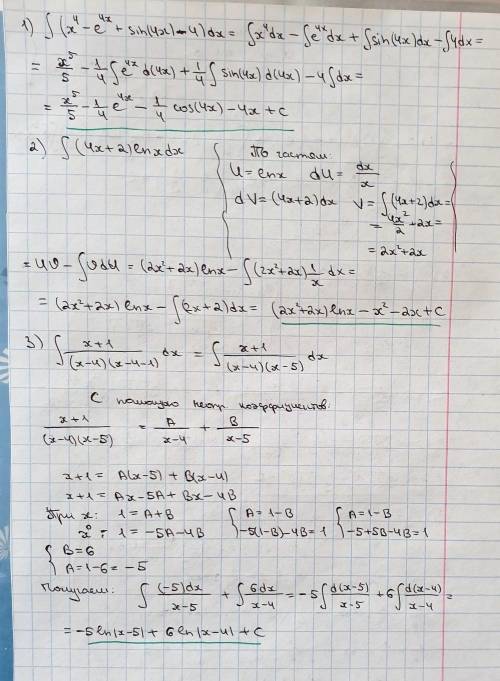 1) ∫(x⁴ - e⁴ˣ + sin(4x) - 4)dx = ∫x⁴dx - ∫e⁴ˣdx + ∫sin(4x)dx - ∫4dx =
= x⁵/5 - 1/4 ∫e⁴ˣ d(4x) + 1/4 ∫ sin(4x) d(4x) - 4∫dx =
= x⁵/5 - 1/4 e⁴ˣ - 1/4 cos(4x) - 4x + C
2) ∫(4x+2)lnxdx
По частям:
U = lnx dU = dx/x
dV = (4x+2)dx V = ∫(4x+2)dx =
= 4x²/2 + 2x =
= 2x² + 2x
= UV - ∫VdU = (2x²+2x)lnx - ∫(2x²+2x) 1/x dx =
= (2x²+2x)lnx - ∫(2x+2)dx = (2x²+2x)lnx - x² - 2x + C
3) ∫ x+1/(x-4)(x-4-1) dx = ∫ x+1/(x-4)(x-5) dx
С помощью неопр. коэффициентов.
x+1/(x-4)(x-5) = A/x-4 + B/x-5
x+1 = A(x-5) + B(x-4)
x+1 = Ax - 5A + Bx - 4B
При x: 1 = A+B { A = 1-B { A = 1-B
x⁰: 1 = -5A - 4B -5(1-B) - 4B = 1 -5+5B-4B = 1
{ B = 6
A = 1-6 = -5
Получаем: ∫ (-5)dx/x-5 + ∫ 6dx/x-4 = -5∫ d(x-5)/x-5 + 6∫ d(x-4)/x-4 =
= -5 ln|x-5| + 6 ln|x-4| + C